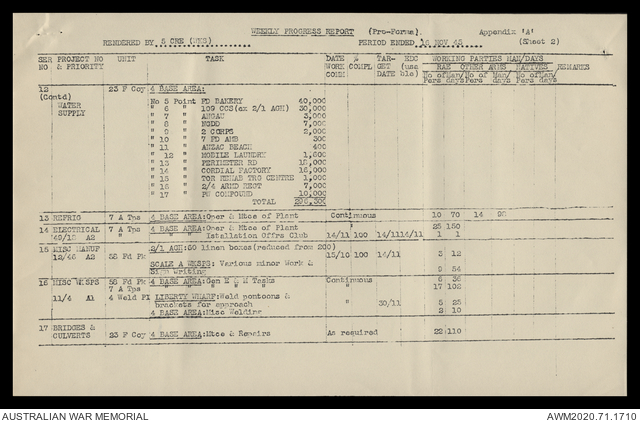 WEEKLY PROGRESS REPORT (Pro-Forma). Appendix 'A'
RENDERED BY 5 CRE (WKS) PERIOD ENDED 16 NOV 45 (Sheet 2)
SER PROJECT NO UNIT TASK DATE % TAR- EDC WORKING PARTIES MAN/DAYS
NO & PRIORITY WORK COMPL GET (usa RAE OTHER ARMS NATIVES REMARKS
COMM DATE ble) No of Man/ No of Man/ No of Man/
Pers days Pers days Pers days
12 23 F Coy 4 BASE AREA:
(Contd) No 5 Point FD BAKERY 60,000
WATER " 6 " 109 CCS (ex 2/1 AGH) 30,000
SUPPLY " 7 " ANGAU 3,000
" 8 " NGDD 7,000
" 9 " 2 CORPS 2,000
" 10 " 7 FD AMB 500
" 11 " ANZAC BEACH 400
" 12 " MOBILE LAUNDRY
" 13 " PERIMETER RD
" 14 " CORDIAL FACTORY 16,000
" 15 " TOR REHAB TRG CENTRE 1,000
" 16 " 2/4 ARMD REGT 7,000
" 17 " PW COMPOUND 10,000
TOTAL
13 REFRIG 7 A Tps 4 BASE AREA:Oper & Mtce of Plant Continuous 10 70 14 98
14 ELECTRICAL 7 A Tps 4 BASE AREA:Oper & Mtce of Plant " 25 150
A2 " " " Istallation Offrs Club 14/11 100 14/11 14/11 1 1
15 MISC MANUF 2/1 AGH:50 linen boxes(reduced from 200)
12/45 A2 58 Fd Pk 15/10 100 14/11 3 12
SCALE A WKSPS: Various minor Work &
Sign writing 9 54
16 MISC WKSPS 58 Fd Pk 4 BASE AREA:Gen E & M Tasks Continuous 6 36
7 A Tps " " " " " " 17 102
11/4 A1 4 Weld Pl LIBERTY WHARF:Weld pontoons & "
brackets for approach 30/11 5 25
4 BASE AREA:Misc Welding 2 10
17 BRIDGES &
CULVERTS 23 F Coy 4 BASE AREA:Mtce & Repairs As required 22 110
AUSTRALIAN WAR MEMORIAL AWM2020.71.1710